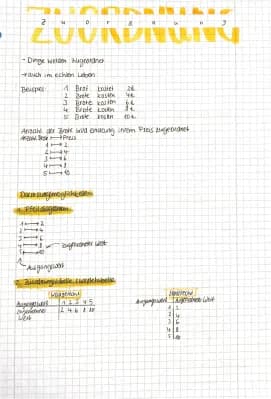 ZUORDNUNG
Zuordnung
- Dinge werden zugeordnet
→ auch im echten Leben
Beispiel: 1 Brot kostet 2€
2 Brote kosten 4€
3 Brote kosten 6€
4 Brote kosten 8€
5 Brote kosten 10€
Anzahl der Brote wird eindeutig ihrem Preis zugeordnet
Anzahl Brot ↦ Preis
1 ↦ 2
2 ↦ 4
3 ↦ 6
4 ↦ 8
5 ↦ 10
Darstellungsmöglichkeiten
1. Pfeildiagramm
1 ↦ 2
2 ↦ 4
3 ↦ 6
4 ↦ 8 ← zugeordneter Wert
5 ↦ 10
Ausgangswert
2. Zuordnungstabelle / Wertetabelle
Waagerecht
Ausgangswert 1 2 3 4 5
zugeordneter Wert 2 4 6 8 10
Senkrecht
Ausgangswert zugeordneter Wert
1 2
2 4
3 6
4 8
5 10